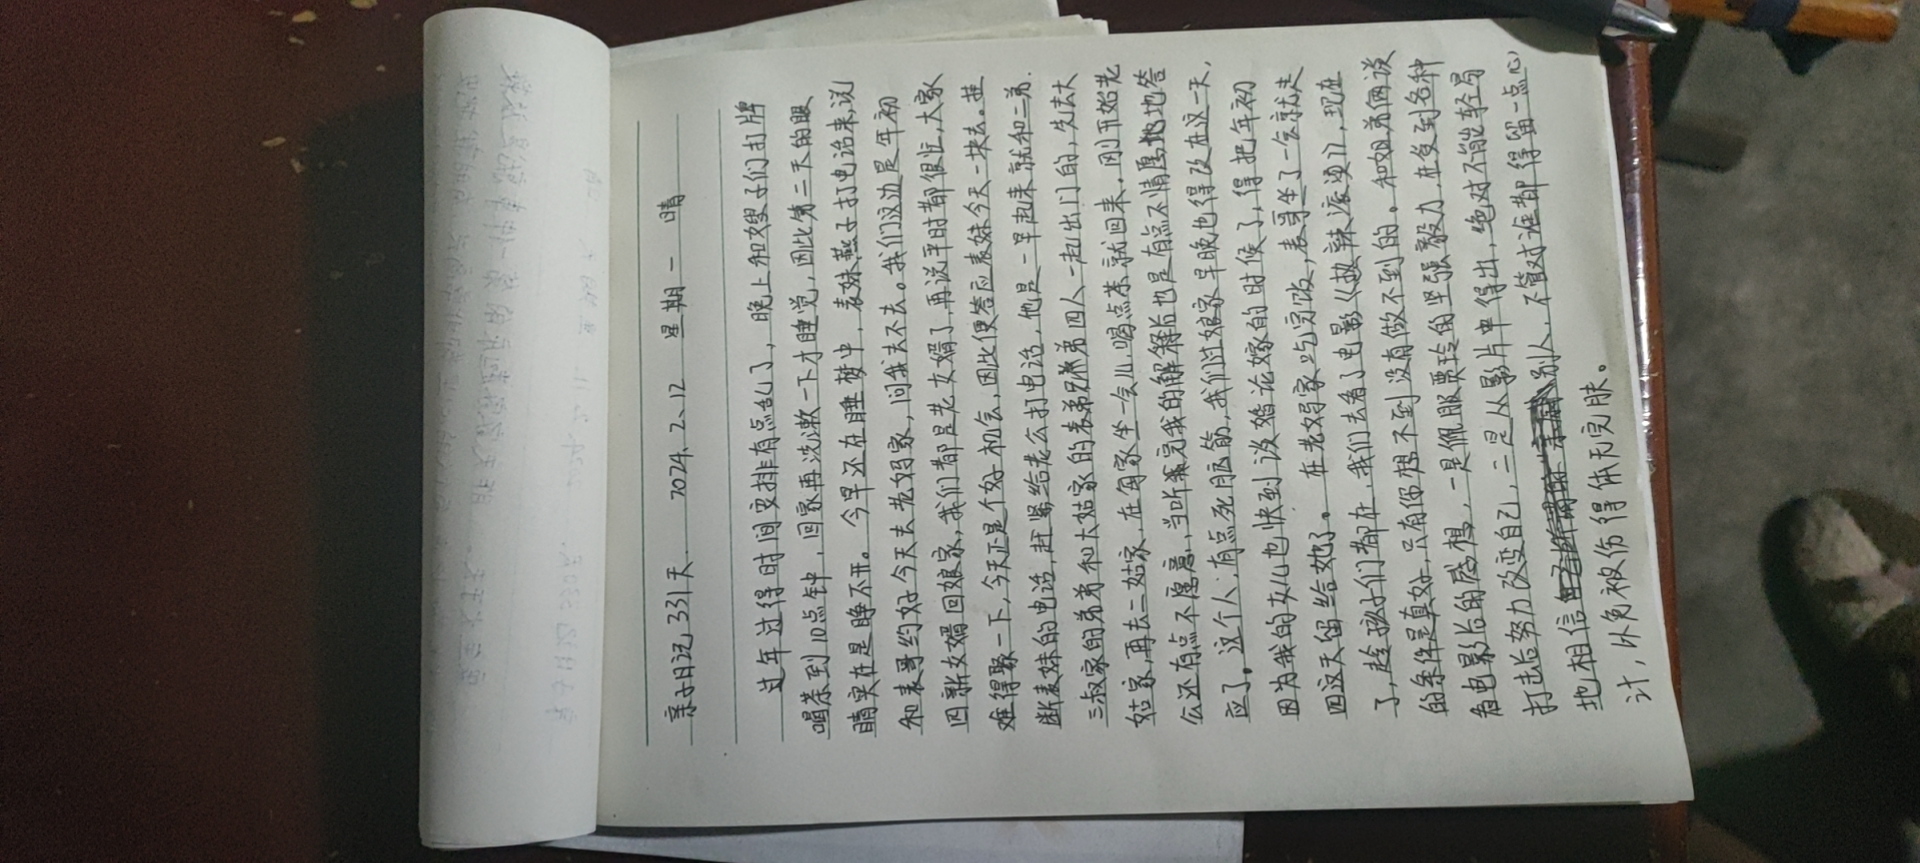 亲子日记331天 2024.2.12 星期一 晴
过年过得时间安排有点乱了，晚上和嫂子们打牌
喝茶到10点钟，回家再洗漱一下才睡觉，因此第二天的眼
睛实在是睁不开。今早还在睡梦中，表妹燕子打电话来，说
和表哥约好今天去老妈家，问我去不去。我们这边是年初
四新女婿回娘家，我们都是老女婿了，再说平时都很忙，大家
难得聚一下，今天正是个好机会，因此便答应表妹今天一块去。挂
断表妹的电话，赶紧给老公打电话，他是一早起来就和二弟.
三叔家的弟弟和大姑家的表弟兄弟四人一起出门的，先去大
姑家，再去二姑家，在每家坐一会儿喝点茶就回来，刚开始老
公还有点不愿意，当听完我的解释后也是有点不情愿地答
应了。这个人，有点死脑筋，我们回娘家早晚也得改在这一天，
因为我的女儿也快到谈婚论嫁的时候了，得把年初
四这天留给她了。在老妈家吃完饭，表哥坐了一会就走
了，趁孩子们都在，我们去看了电影《热辣滚烫》，现在
的条件是真好，只有你想不到没有做不到的。和姐弟俩谈
看电影后的感想，一是佩服贾玲的坚强毅力，在受到各种
打击后努力改变自己，二是从影片中得出，绝对不能轻易
地相信别人，不管对谁都得留一点心
计，以免被伤得体无完肤。